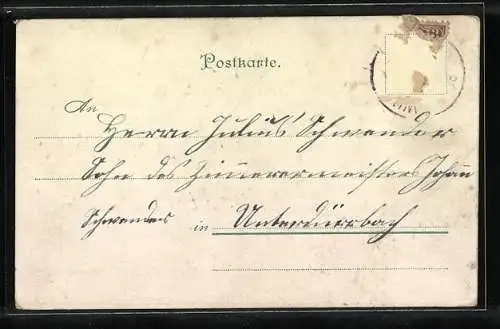 Postkarte.
An
Herrn Julius Schwender
Sohn des Zimmermeisters Johann
Schwenders in Unterdürrbach